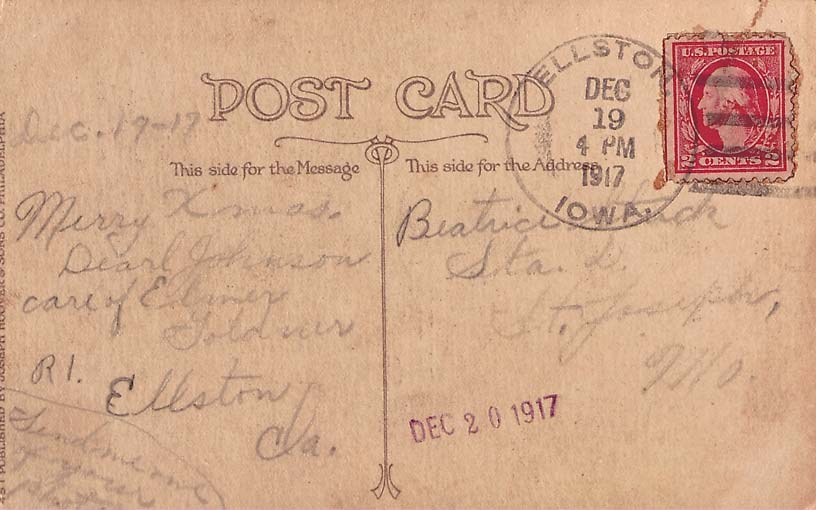 POST CARD
This side for the Message
This side for the Address
U.S. POSTAGE
2 CENTS 2
ELLSTON,
DEC
19
4 PM
1917
IOWA.
Dec. 19-17
Merry Xmas.
Pearl Johnson
care of Elmer
R1.
Ellston
Ia.
Send me one
of your
photos
Beatrice
Sta. D.
St. Joseph,
Mo.
DEC 20 1917
PUBLISHED BY JOSEPH HOOVER & SONS CO. PHILADELPHIA